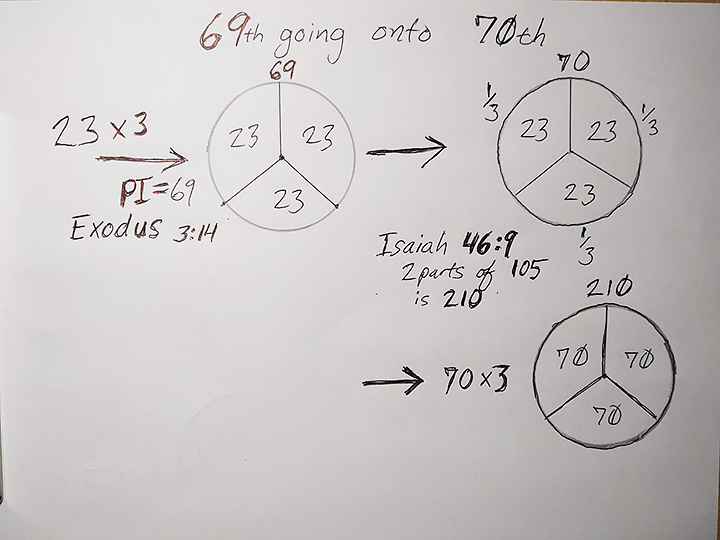 69th going onto 70th
69
23 x 3
23 23
23
PI=69
Exodus 3:14
70
1/3 1/3
23 23
23
1/3
Isaiah 46:9
2 parts of 105
is 210
210
70 x 3
70 70
70